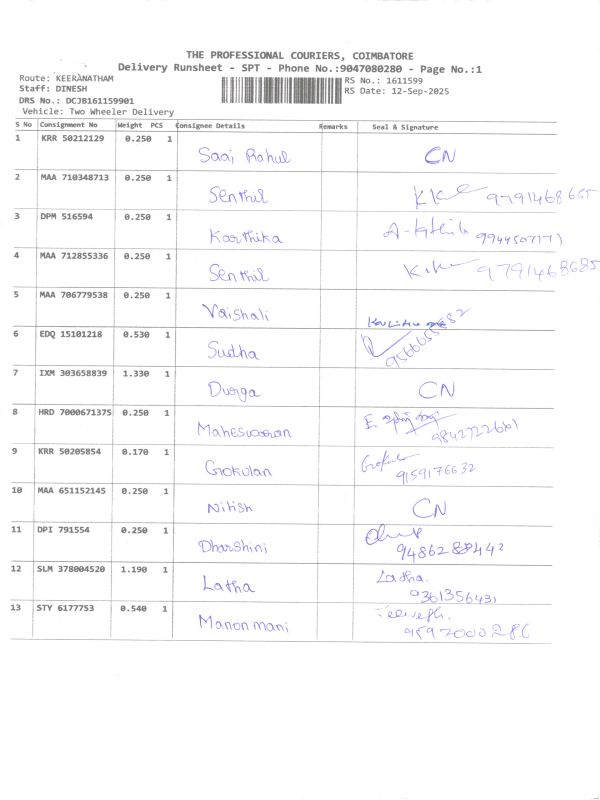 THE PROFESSIONAL COURIERS, COIMBATORE
Delivery Runsheet - SPT - Phone No.:9047080280 - Page No.:1
Route: KEERANATHAM RS No.: 1611599
Staff: DINESH RS Date: 12-Sep-2025
DRS No.: DCJB161159901
Vehicle: Two Wheeler Delivery
S No Consignment No Weight PCS Consignee Details Remarks Seal & Signature
1 KRR 50212129 0.250 1
Saai Rahul CN
2 MAA 710348713 0.250 1
Senthil 9791468685
3 DPM 516594 0.250 1
Karthika 9944507171
4 MAA 712855336 0.250 1
Senthil 9791468685
5 MAA 706779538 0.250 1
Vaishali
6 EDQ 15101218 0.530 1
Sudha
7 IXM 303658839 1.330 1
Durga CN
8 HRD 7000671375 0.250 1
Maheswaran
9 KRR 50205854 0.170 1
Gokulan 9159176632
10 MAA 651152145 0.250 1
Nitish CN
11 DPI 791554 0.250 1
Dharshini
12 SLM 378004520 1.190 1
Latha Latha.
9361356431
13 STY 6177753 0.540 1
Manonmani 9597000286